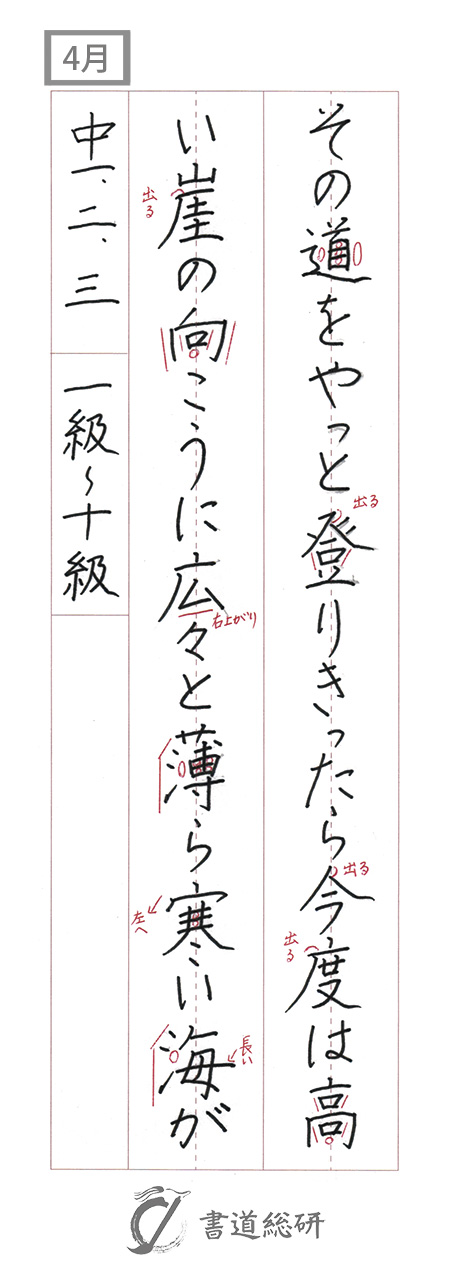 4月
その道をやっと登りきったら今度は高
い崖の向こうに広々と薄ら寒い海が
中一、二、三
一級〜十級
出る
出る
出る
出る
右上がり
左へ
長い
書道総研